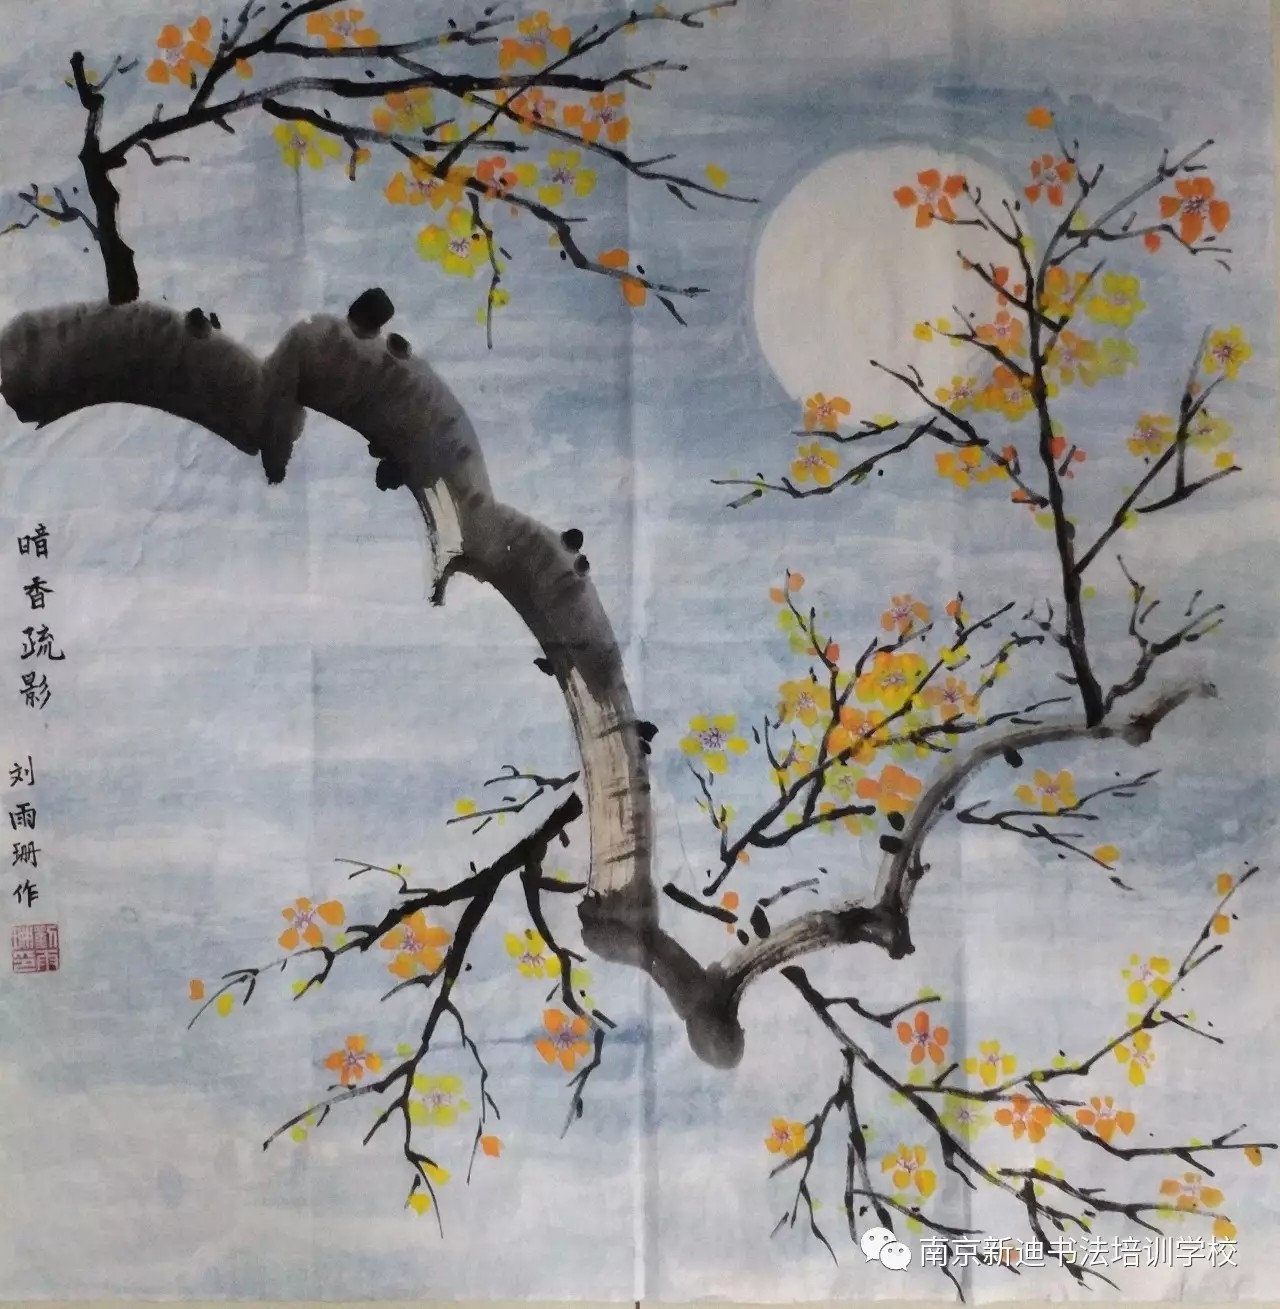 暗香疏影
刘雨珊作
南京新迪书法培训学校